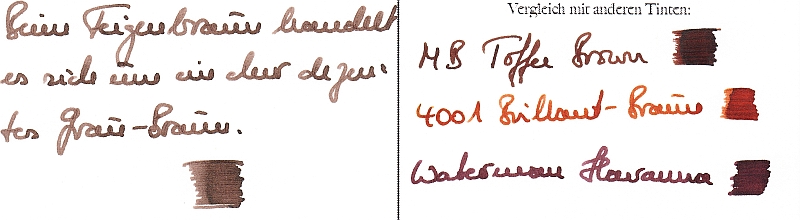 Beim Feigenbraun handelt
es sich um ein eher dezen-
tes Grau-Braun.
Vergleich mit anderen Tinten:
MB Toffee Brown
4001 Brillant-Braun
Waterman Havanna